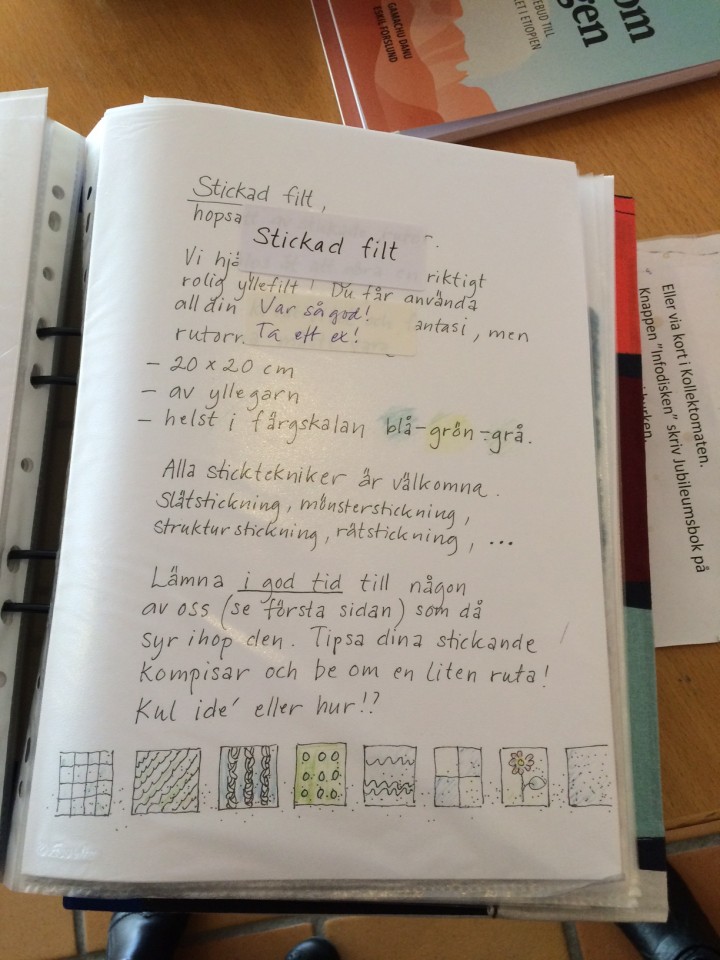 GAMACHU DANU
ESKIL FORSLUND
EBUD TILL
KET I ETIOPIEN
om
gen
Stickad filt,
hopsa
Stickad filt
Vi hjä riktigt
rolig yllefilt! Du får använda
all din antasi, men
Var så god!
Ta ett ex!
rutorr
- 20 x 20 cm
- av yllegarn
- helst i färgskalan blå-grön-grå.
Alla sticktekniker är välkomna.
Slätstickning, mönsterstickning,
strukturstickning, rätstickning, ...
Lämna i god tid till någon
av oss (se första sidan) som då
syr ihop den. Tipsa dina stickande
kompisar och be om en liten ruta!
Kul idé eller hur!?
Eller via kort i Kollektomaten.
Knappen "Infodisken" skriv Jubileumsbok på